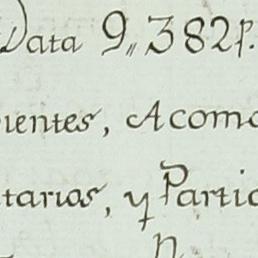 Data 9,,382p.
ientes, Acomo
tarios, y Partic